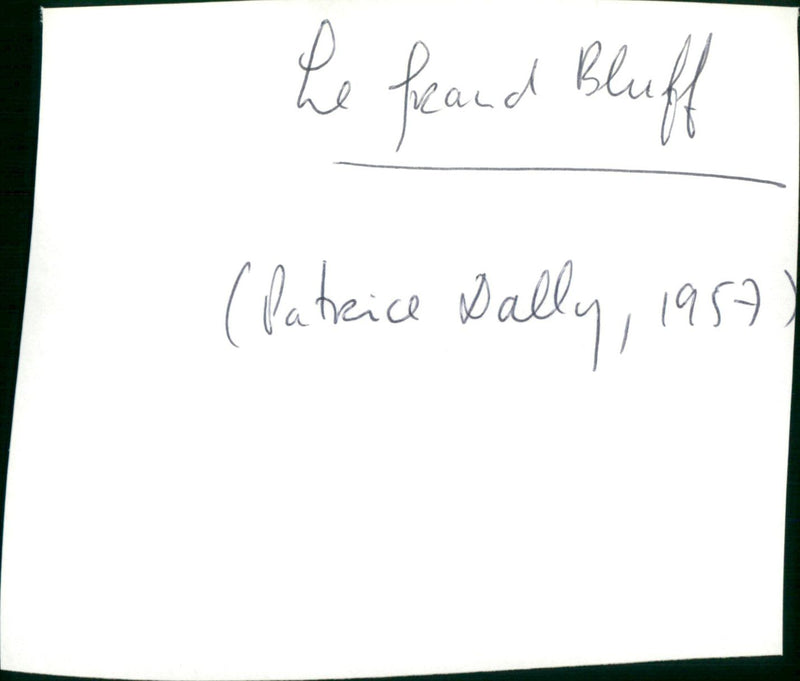 Le Grand Bluff
(Patrice Dally, 1957)